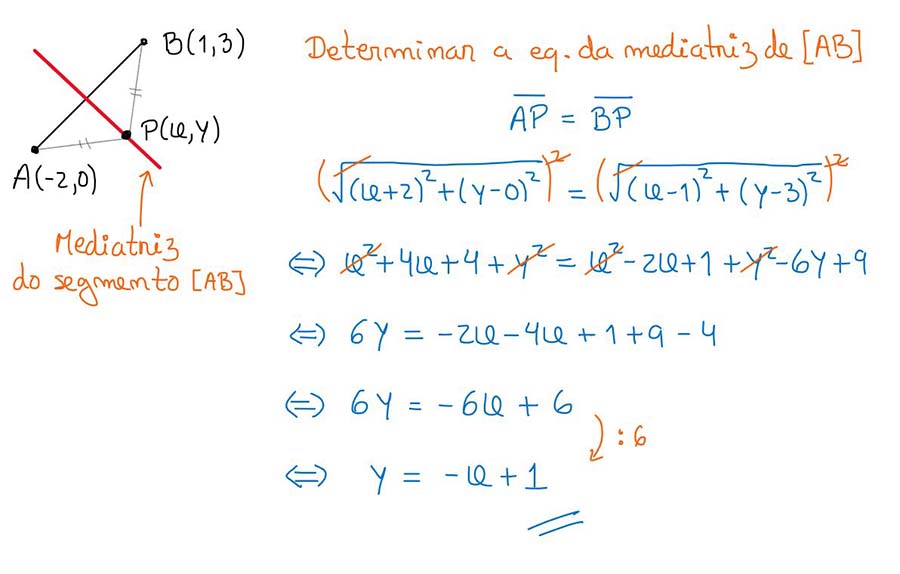 B(1,3)
P(x,y)
A(-2,0)
Mediatriz
do segmento [AB]
Determinar a eq. da mediatriz de [AB]
A̅P̅ = B̅P̅
(√(x+2)²+(y-0)²)² = (√(x-1)²+(y-3)²)²
⇔ x²+4x+4+y² = x²-2x+1+y²-6y+9
⇔ 6y = -2x-4x+1+9-4
⇔ 6y = -6x+6
:6
⇔ y = -x+1